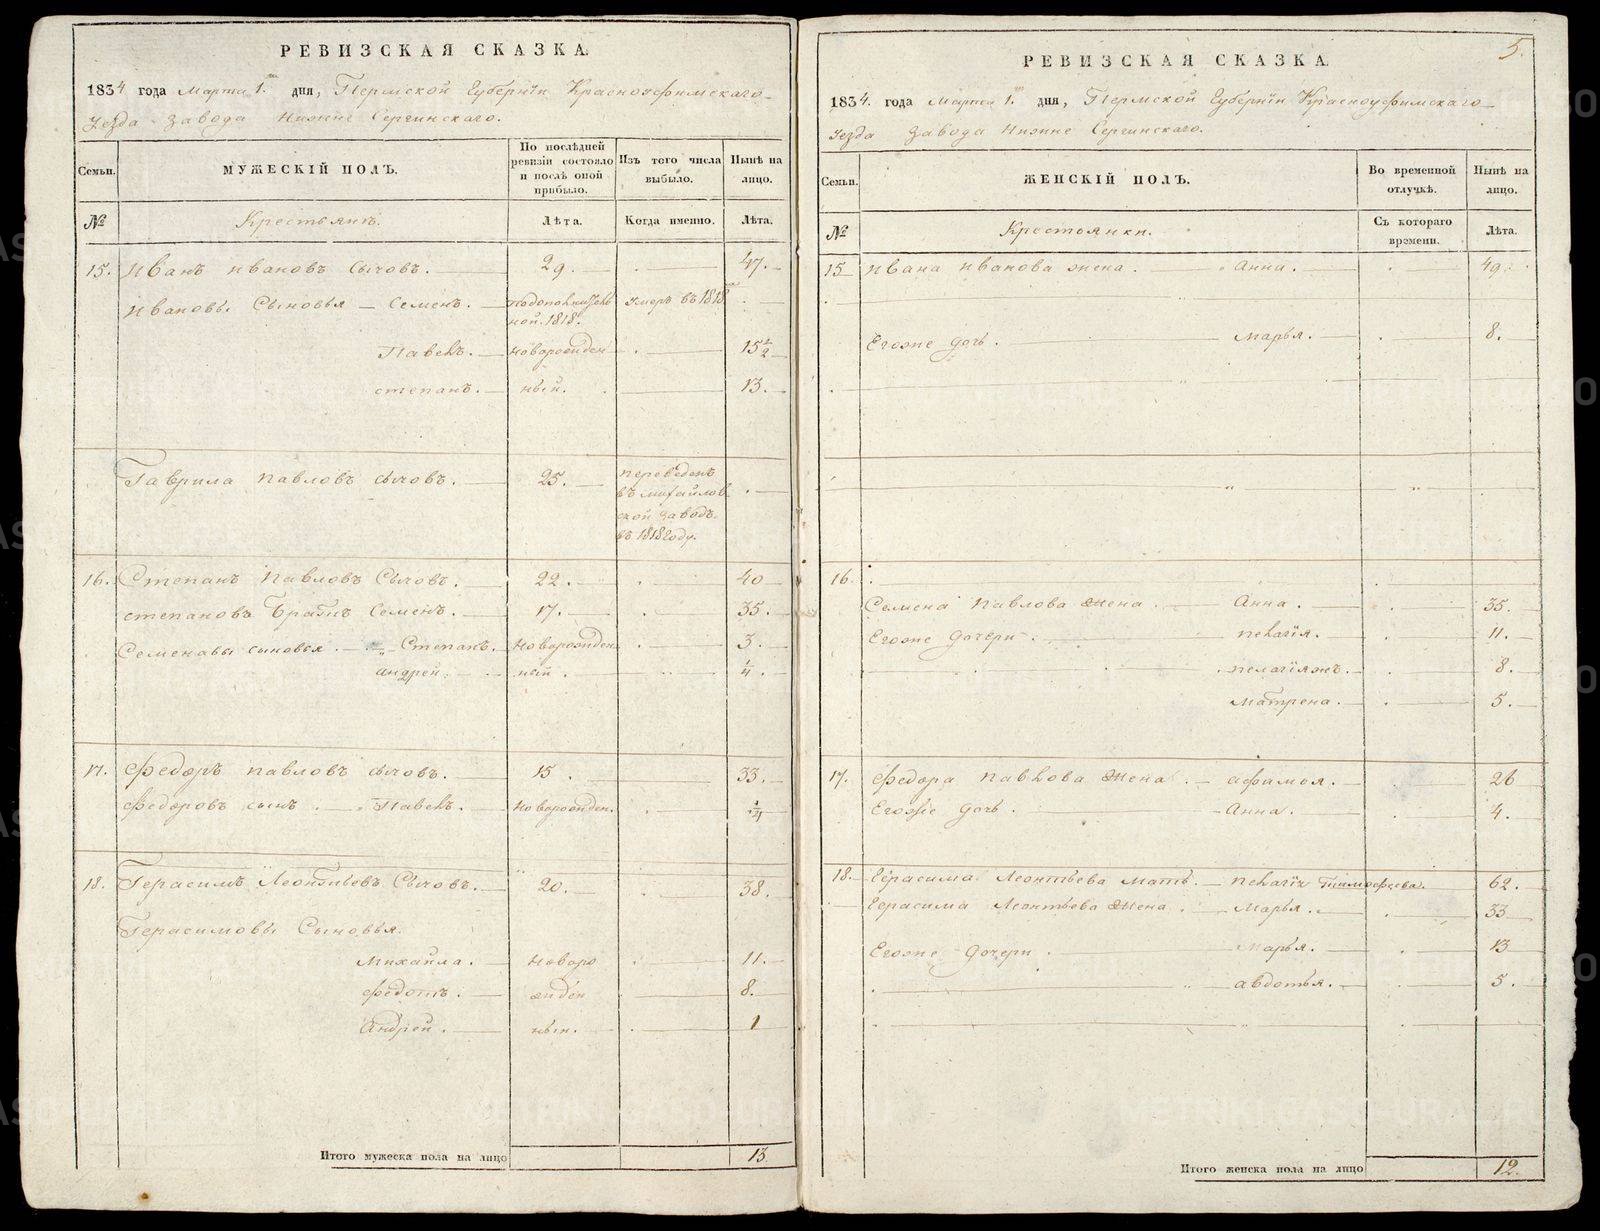 РЕВИЗСКАЯ СКАЗКА.
1834 года Марта 1го дня, Пермской Губернiи Красноуфимскаго
Уезда завода Нижне Сергинскаго.
Семьи. МУЖЕСКІЙ ПОЛЪ. По послѣдней ревизіи состояло и послѣ оной прибыло. Изъ того числа выбыло. Нынѣ на лицо.
№ Крестьянъ. Лѣта. Когда именно. Лѣта.
15. Иванъ Ивановъ Сычовъ. 29. 47.
Ивановы Сыновья Семенъ. умеръ въ 1818м
ной. 1818.
Павелъ. Новорожден 15 1/2
степанъ. ный. 13.
Гаврила павловъ сычовъ. 25. переведенъ
въ михайлов
ской заводъ
въ 1818 году.
16. Степанъ павловъ Сычовъ. 22. 40
степановъ Братъ Семенъ. 17. 35.
Семеновы сыновья Степанъ. Новорожден 3.
андрей. ный. 1/4.
17. Федоръ павловъ сычовъ. 15. 33.
федоровъ сынъ. Павелъ. Новорожден. 1/4
18. Герасимъ Леонтьевъ Сычовъ. 20. 38.
Герасимовы Сыновья.
Михайла. Новоро 11.
федотъ. жден 8.
Андрей. ный. 1
Итого мужеска пола на лицо 13
5.
РЕВИЗСКАЯ СКАЗКА.
1834. года Марта 1го дня, Пермской Губернiи Красноуфимскаго
Уезда Завода Нижне Сергинскаго.
Семьи. ЖЕНСКІЙ ПОЛЪ. Во временной отлучкѣ. Нынѣ на лицо.
№ Крестоянки. Съ котораго времени. Лѣта.
15 Ивана Иванова жена. Анна. 49.
Егоже дочь. марья. 8.
16.
Семена Павлова жена. Анна. 35.
Егоже дочери. пелагiя. 11.
пелагiяжъ. 8.
матрена. 5.
17. федора павлова жена. афимья. 26
Егоже дочь. Анна. 4.
18. Герасима Леонтьева мать. пелагiя Тимофеева. 62.
Герасима Леонтьева жена. Марья. 33
Егоже дочери. марья. 13
авдотья. 5.
Итого женска пола на лицо 12.
METRIKI.GASO-URAL.RU